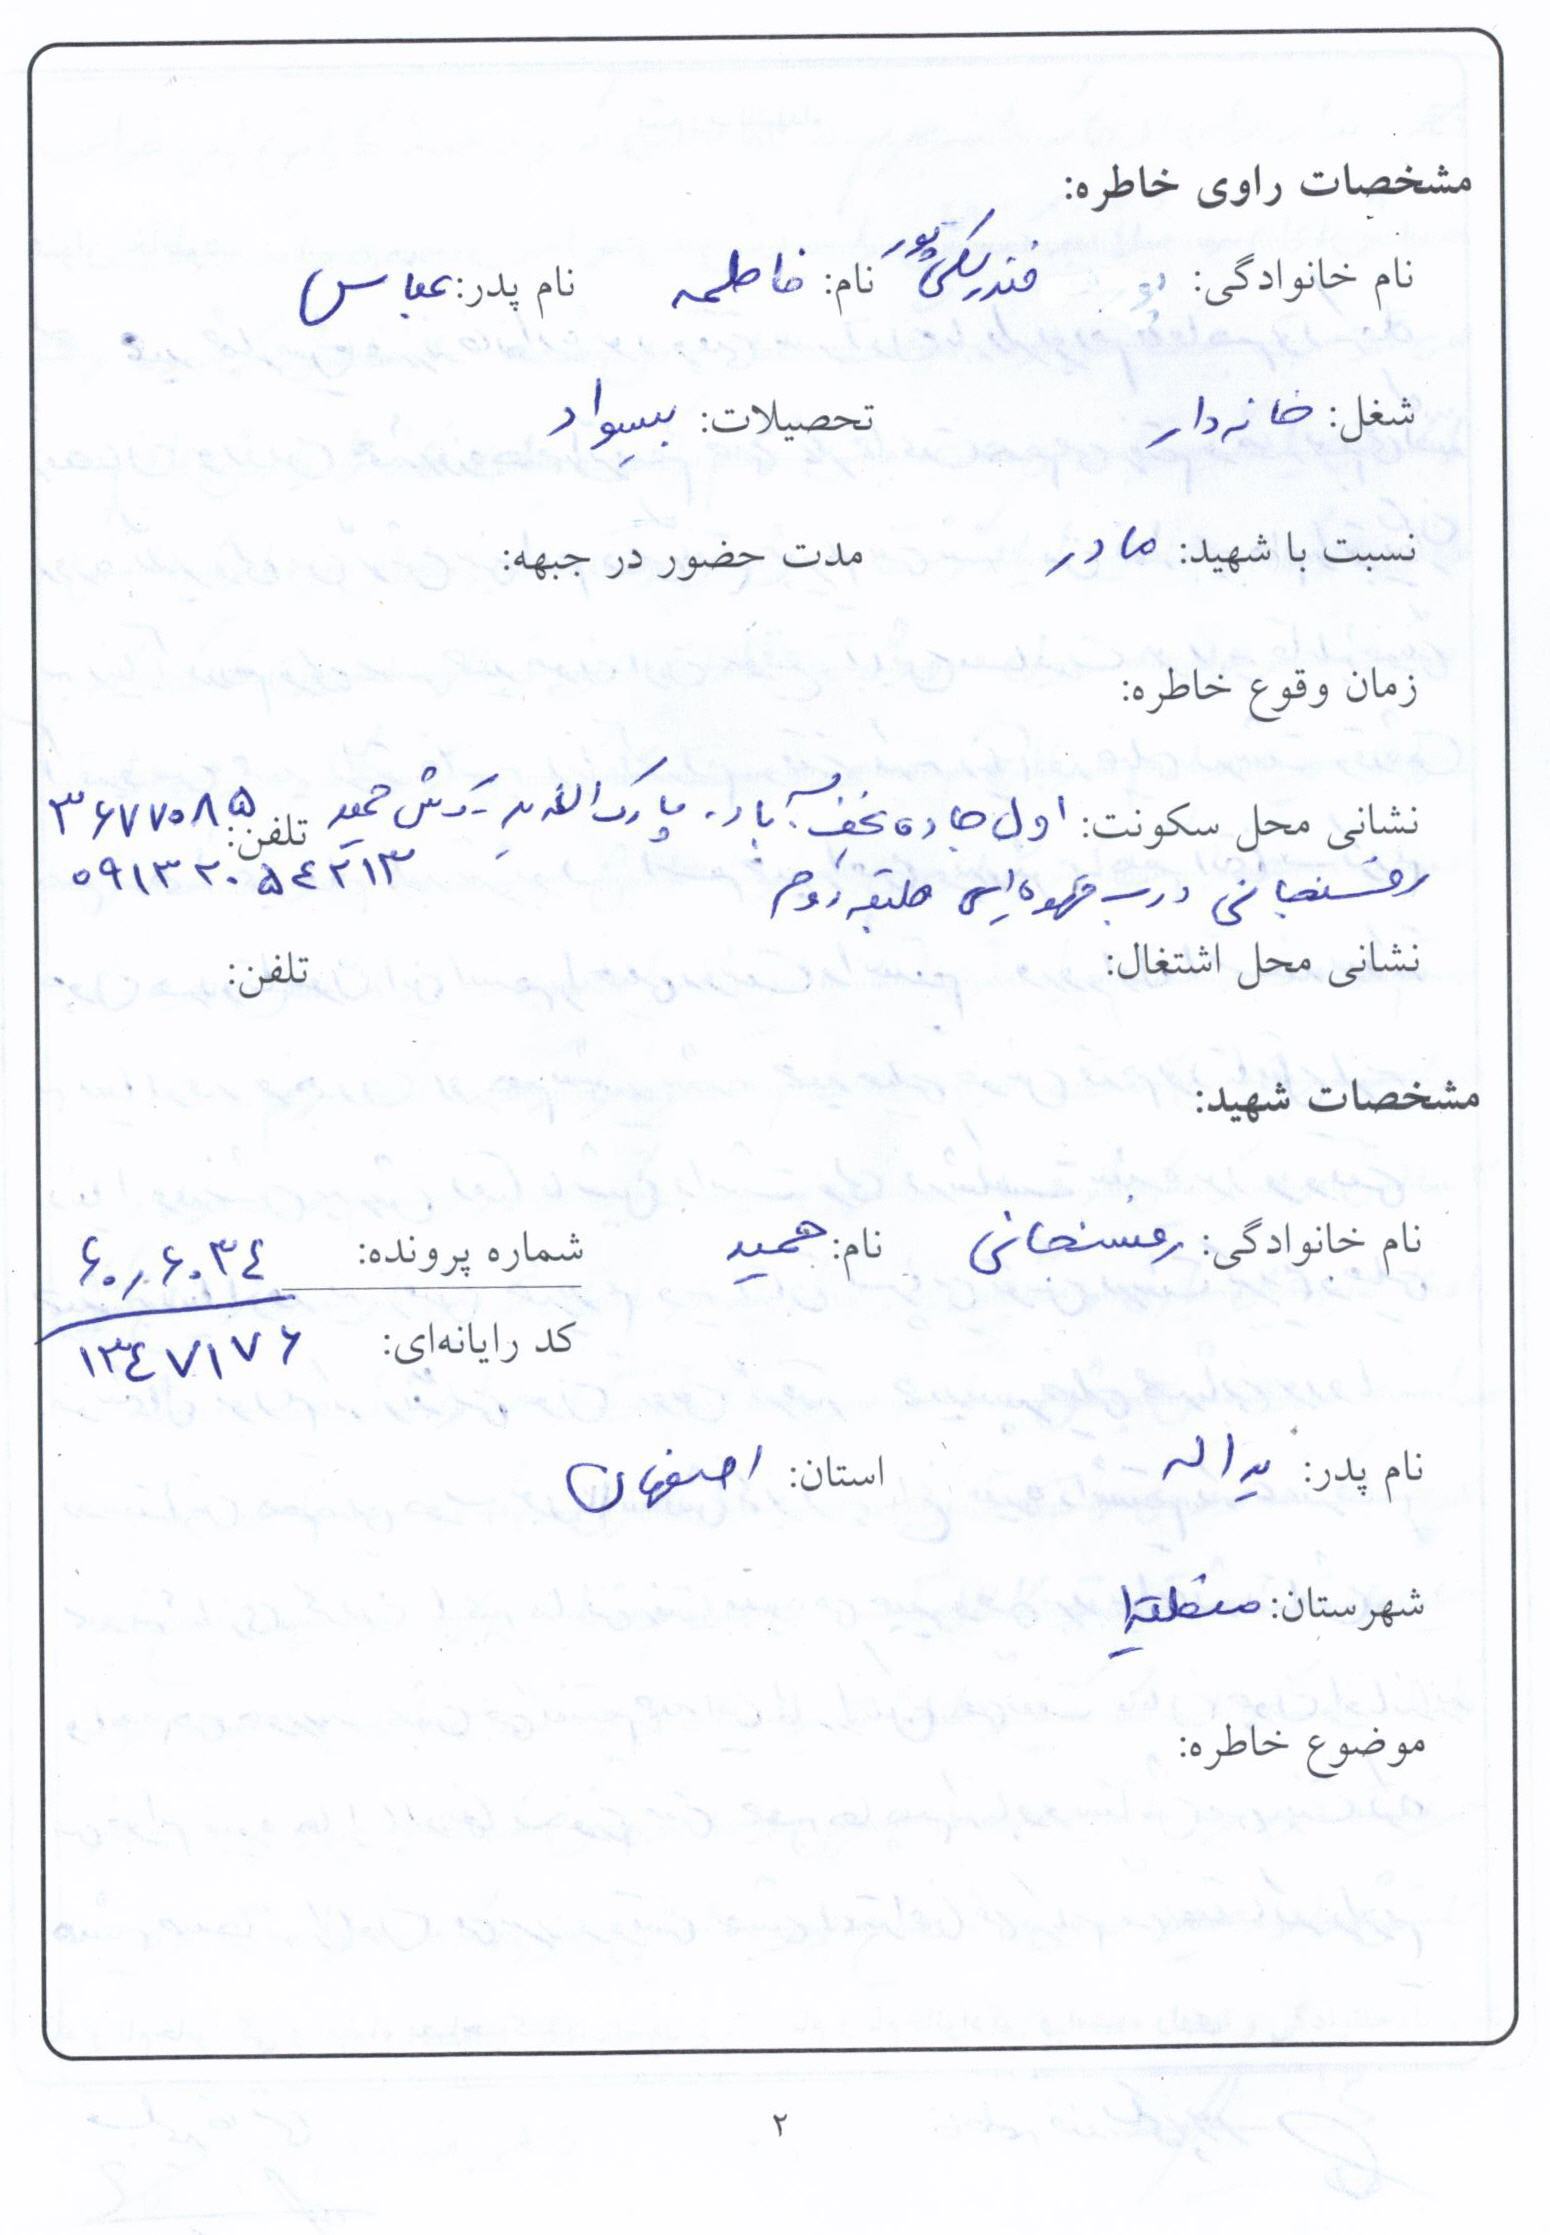 مشخصات راوی خاطره:
نام خانوادگی: قندیلی‌پور نام: فاطمه نام پدر: عباس
شغل: خانه‌دار تحصیلات: بیسواد
نسبت با شهید: مادر مدت حضور در جبهه:
زمان وقوع خاطره:
نشانی محل سکونت: اول جاده نجف‌آباد، پارک لاله حمید تلفن: ۳۶۷۷۰۸۵
رفسنجانی درب قهوه‌ایی طبقه دوم ۰۹۱۳۲۰۵۴۲۱۳
نشانی محل اشتغال: تلفن:
مشخصات شهید:
نام خانوادگی: رفسنجانی نام: حمید شماره پرونده: ۶۰/۶۰۳۴
کد رایانه‌ای: ۱۳۴۷۱۷۶
نام پدر: یداله استان: اصفهان
شهرستان: منطقه۱
موضوع خاطره:
۲